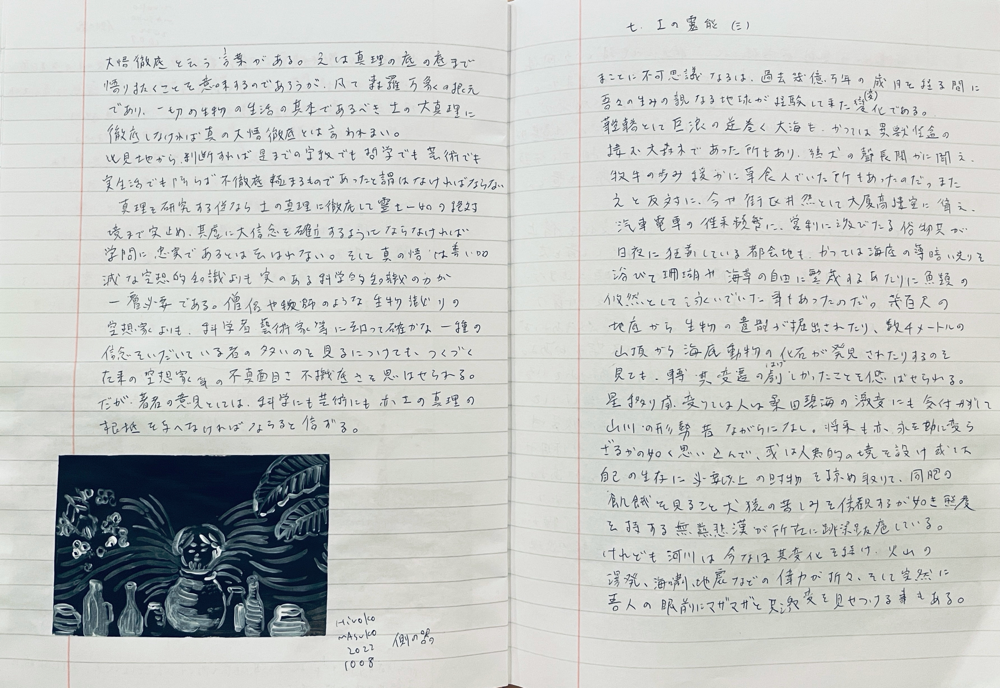 大悟徹底と云う言葉がある。之は真理の底の底まで
悟り抜くことを意味するのであろうが、凡て森羅万象の根元
であり、一切の生物の生活の基本であるべき土の大真理に
徹底しなければ真の大悟徹底とは言われまい。
此見地から判断すれば是までの宗教でも哲学でも芸術でも
実生活でも 不徹底極まるものであったと謂はなければならない
真理を研究する 土の真理に徹底して霊土一如の絶対
境まで突止め、其処に大信念を確立するようにならなければ
学問に忠実であるとは云はれない。そして真の悟は善い加
減な空想的知識よりも実のある科学的知識の方が
一層必要である。僧侶や牧師のような生物識りの
空想家よりも、科学者藝術家等に却って確かな一種の
信念をいだいている者の多いのを見るにつけても、つくづく
在来の空想家等の不真面目さ不徹底さを思はせられる。
だが、著者の意見としては、科学にも芸術にも亦土の真理の
根柢を与へなければならぬと信ずる。
Hiroko
Masuko
2022
1008
側の器
七、土の霊能(三)
まことに不可思議なるは、過去幾億万年の歳月を経る間に
吾々の生みの親なる地球が経験して来た変化である。
鞺鞳として巨浪の逆巻く大海も、かつては異獣怪禽の
棲む大森林であった所もあり、 犬の聲長閑かに聞え、
牧牛の歩み緩かに草食んでいた所もあったのだ。また
之と反対に、今や街区井然として大厦高楼空に聳え、
汽車電車の往来頻繁に、営利に渡びたる俗物共が
日夜に狂奔している都会地も、かつては海底の
浴びて珊瑚や海草の自由に繁茂するあたりに魚類の
悠然として泳いでいた事もあったのだ。幾百尺の
地底から生物の遺骸が掘出されたり、数千メートルの
山頂から海底動物の化石が発見されたりするのを
見ても、 其変遷の劇しかったことを偲ばせられる。
星移り 変りては人は桑田碧海の激変にも気付かずして
山川の形勢昔ながらになし。将来も亦、永劫に変ら
ざるかの如く思い込んで、或は人為的の境を設け或は
自己の生存に必要以上の財物を掠め取りて、同胞の
飢餓を見ること犬猿の苦しみを傍観するが如き態度
を持する無慈悲漢が所在に跳梁跋扈している。
けれども河川は今なほ其変化を続け、火山の
爆発、海嘯、地震などの偉力が折々、そして突然に
吾人の眼前にマザマザと其激変を見せつける事もある。